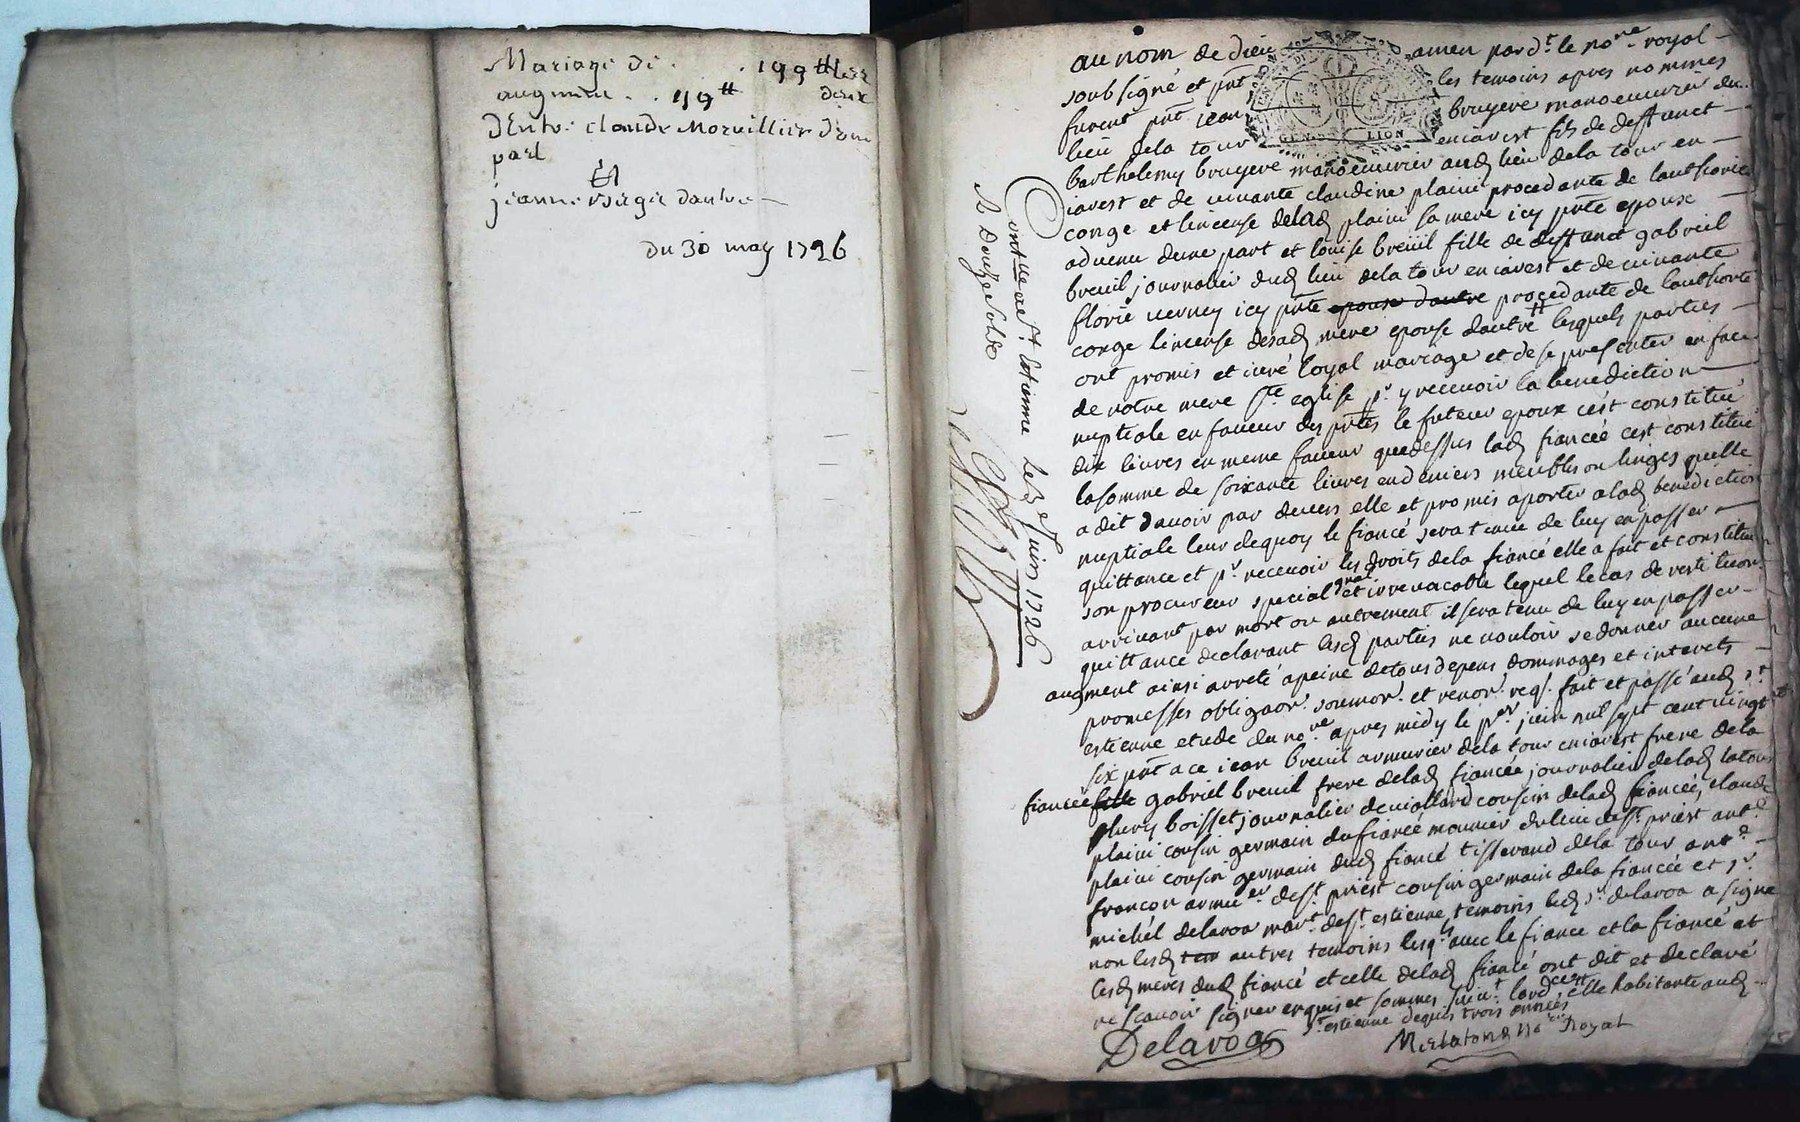 Mariage de . . 199tt
augment . . 49tt deux
d'Entre claude Morvillier d'une
part
Et
jeanne d'autre
du 30 may 1726
au nom de dieu amen pard.t le no.re royal
soubsigné et pnt les temoins apres nommes
furent pnt jean bruyere manoeuvrier du
lieu dela tour enjarest fils de deffunct
barthelemy bruyere manoeuvrier aud lieu dela tour en
jarest et de vivante claudine plaini procedante de lauthorité
conge et lincense delad plaini sa mere icy pnte epoux
advenu dune part et louise breuil fille de deffunct gabriel
breuil journalier dud lieu dela tour enjarest et de vivante
florie verney icy pnte epouse dautre procedante de lauthorité
conge lincense desad mere epouse dautre lesquels parties
ont promis et juré loyal mariage et de se presenter en face
de notre mere ste eglise pr y recevoir la benediction
nuptiale en faveur des pntes le futeur epoux cest constitué
dix livres en meme faveur quedessus lad fiancée cest constitué
lasomme de soixante livres endeniers meubles ou linges quelle
a dit davoir par devers elle et promis aporter alad benediction
nuptiale leur dequoy le fiancé sera tenu de luy en passer
quittance et pr recevoir les droits dela fiancé elle a fait et constitué
son procureur special gnal et irrevocable lequel le cas de restitution
arrivant par mort ou autrement il sera tenu de luy en passer
quittance declarant lesd parties ne vouloir se donner aucune
augment ainsi arreté apeine detous depens dommages et interets
promesses obligaon. soumon. et renon. req. fait et passé aud st
estienne etude du no.re apres midy le p.er juin mil sept cent vingt
six pnt a ce jean breuil armurier dela tour enjarest frere dela
fiancée fille gabriel breuil frere delad fiancée journalier delad latour
fleury boisset journalier deviollard cousin delad fiancée, claude
plaini cousin germain dufiancé mounier dulieu dest. priest ant.e
plaini cousin germain dud fiancé tisserand dela tour ant.e
françon armu.er dest. priest cousin germain dela fiancée et sr.
michel delaroa mar.t dest. estienne, temoins led sr. delaroa a signé
non lesd tem autres temoins lesqls avec le fiancé et la fiancé et
lesd meres dud fiancé et celle delad fiancé ont dit et declaré
ne scavoir signer enquis et sommes suiv.t lord.ce elle habitante aud
st. estienne depuis trois années
Delaroa
no.re Royal
Contr.lle a St Estienne le 3e Juin 1726
R Douze sols